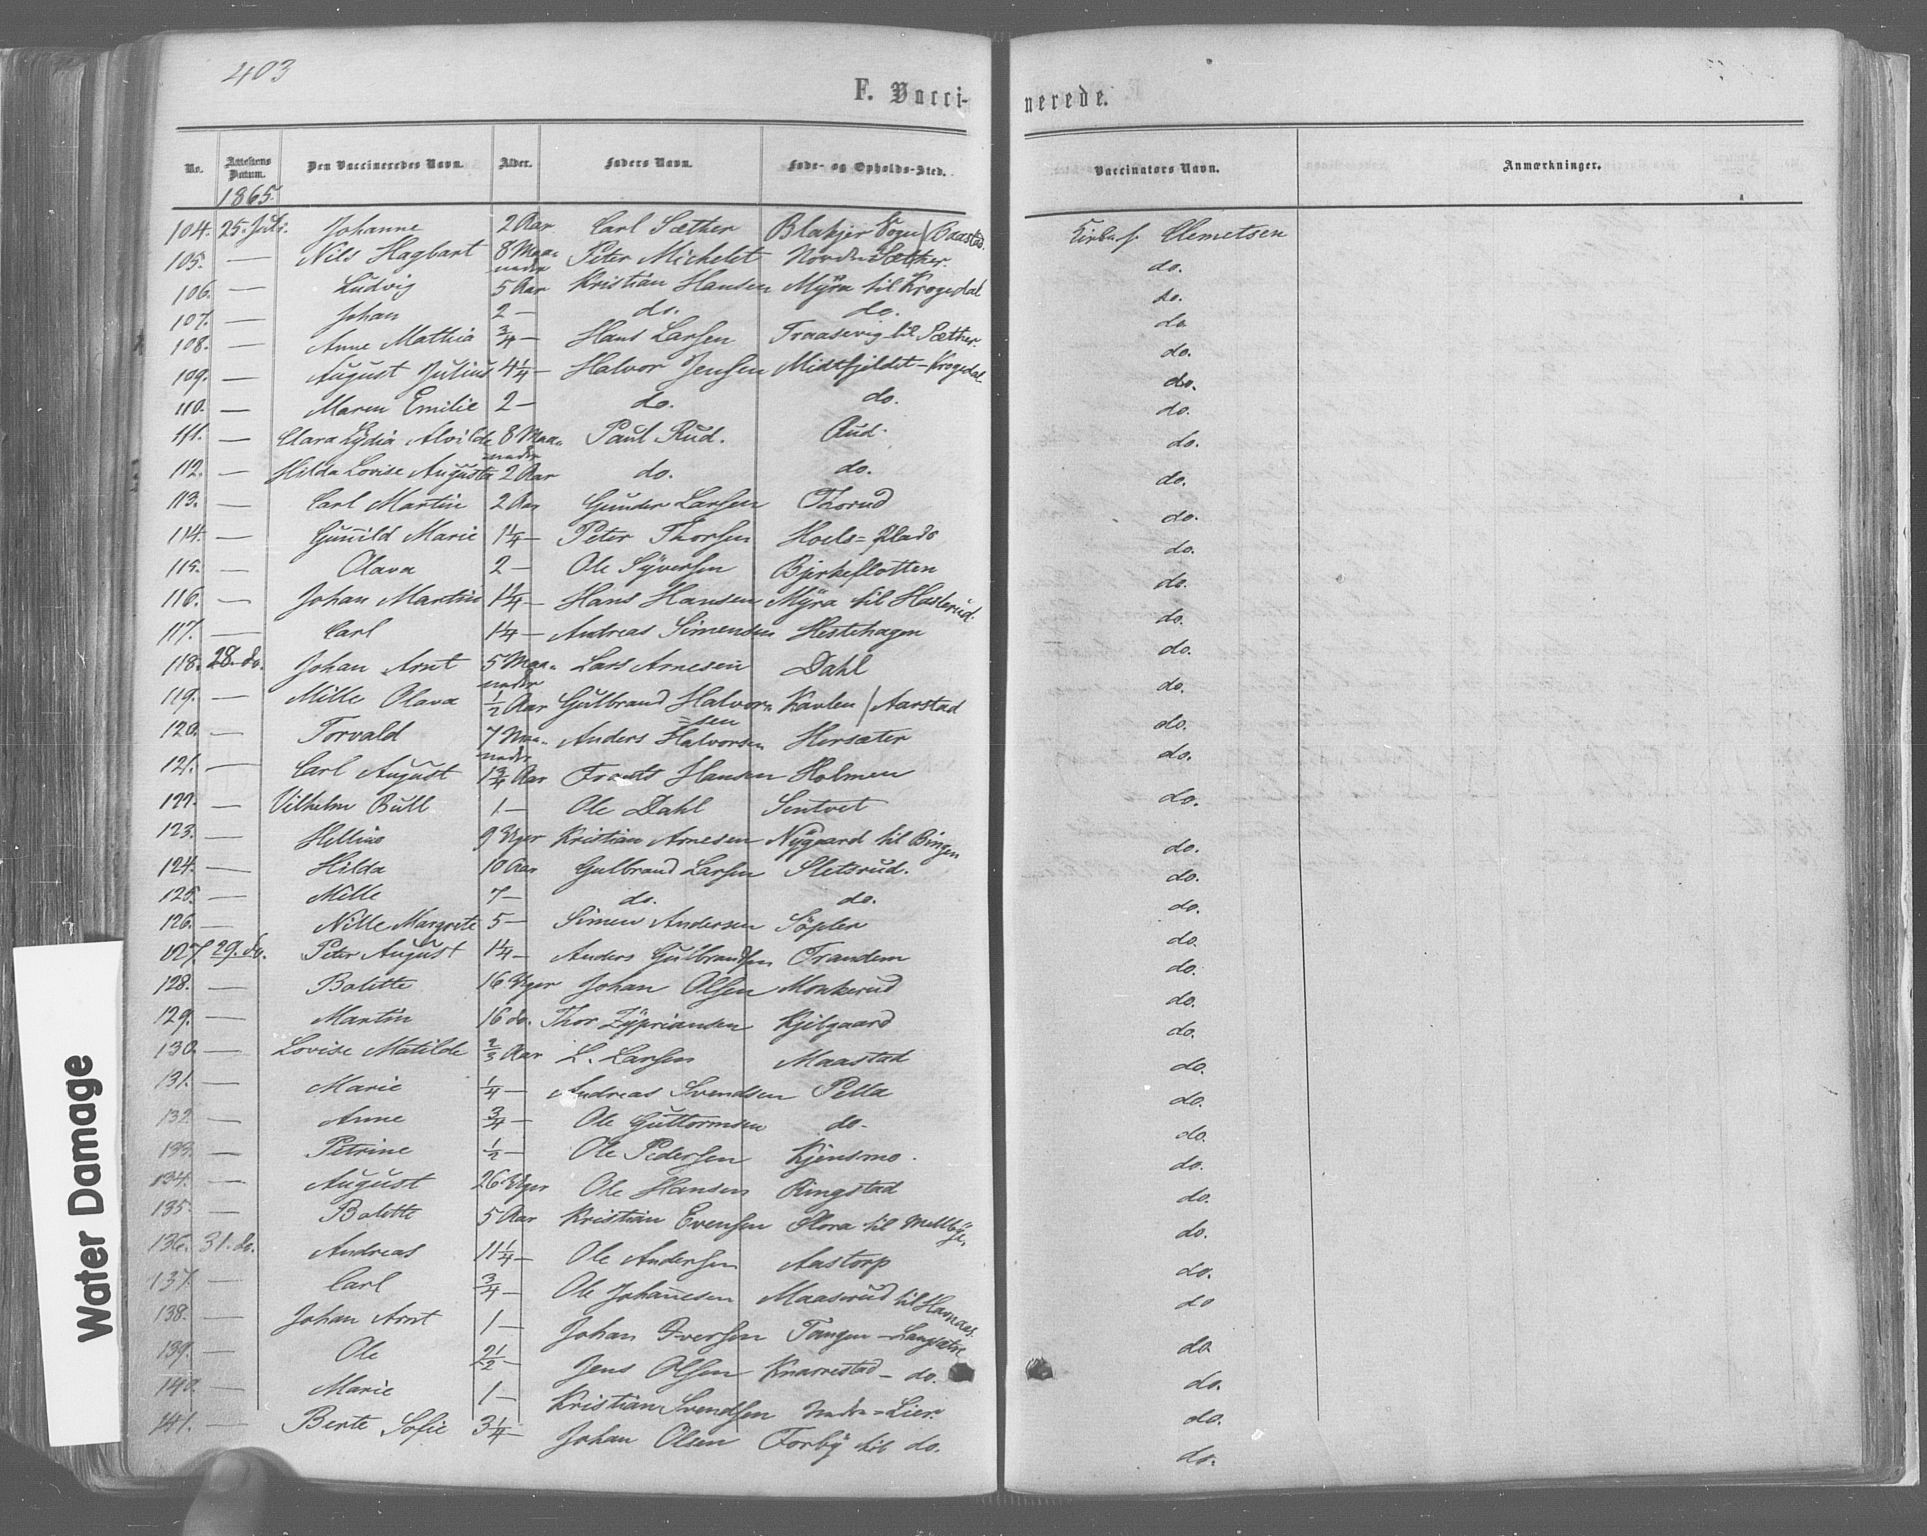 403
F. Vacci-
nerede.
No. Attestens Datum. Den Vaccineredes Navn. Alder. Faders Navn. Føde- og Opholds-Sted. Vaccinators Navn. Anmærkninger.
1865.
104. 25. Juli. Johanne 2 Aar Carl Sæther Blakjer Sogn / Clemetsen
105. — Nils Hagbart 8 Maaneder Peter Michelet Nordre Sæther. do.
106. — Ludvig 5 Aar Kristian Hansen Myra til Krogsdal do.
107. — Johan 2 — do. do. do.
108. — Anne Mathia 3/4 — Hans Larsen Traasevig til Sæther. do.
109. — August Julius 4 1/4 — Halvor Jensen Midtfjeldet — Krogsdal do.
110. — Maren Emilie 2 — do. do. do.
111. — Clara Lydia Alvilde 8 Maaneder Paul Rud. Rud. do.
112. — Hilda Lovise Augusta 2 Aar do. do. do.
113. — Carl Martin 2 Aar Gunder Larsen Thorud do.
114. — Gunild Marie 1 1/4 — Peter Thorsen Hoels=Plads do.
115. — Olava 2 — Ole Syversen Bjerkeflotten do.
116. — Johan Martin 1 1/4 — Hans Hansen Myra til Haslerud. do.
117. — Carl 1 1/4 — Andreas Simensen Hestehagen do.
118. 28. do. Johan Arnt 5 Maaneder Lars Arnesen Dahl do.
119. — Mille Olava 1/2 Aar Gulbrand Halvor=sen / Aarstad do.
120. — Torvald 7 Maaneder Anders Halvorsen Hersæter do.
121. — Carl August 1 3/4 Aar Frants Hansen Holmen do.
122. — Vilhelm Bull 1 — Ole Dahl Sentvet do.
123. — Helline 9 Uger Kristian Arnesen Nygaard til Bingen do.
124. — Hilda 10 Aar Gulbrand Larsen Sletsrud. do.
125. — Mille 7 — do. do. do.
126. — Nille Margrete 5 — Simen Andersen Söpler do.
127. 29. do. Peter August 1 1/4 — Anders Gulbrandsen Trandem do.
128. — Bolette 16 Uger Johan Olsen Monkerud do.
129. — Martin 16 do. Thor Zypriansen Kjilgaard do.
130. — Lovise Matilde 2/3 Aar L. Larsen Maastad do.
131. — Marie 1/4 — Andreas Svendsen Pella do.
132. — Anne 3/4 — Ole Guttormsen do. do.
133. — Petrine 1/2 — Ole Pedersen Kjensmo. do.
134. — August 26 Uger Ole Hansen Ringstad do.
135. — Bolette 5 Aar Kristian Evensen Flora til Mellbye. do.
136. 31. do. Andreas 11 1/4 — Ole Andersen Aastorp do.
137. — Carl 3/4 — Ole Johannesen Maaserud til Havnaas. do
138. — Johan Arnt 1 — Johan Iversen Tangen — Langsæter do.
139. — Ole 2 1/2 — Jens Olsen Knarrestad — do. do.
140. — Marie 1 — Kristian Svendsen Nedre=Lier. do.
141. — Berte Sofie 3 1/4 — Johan Olsen Forby til do. do.
Water Damage